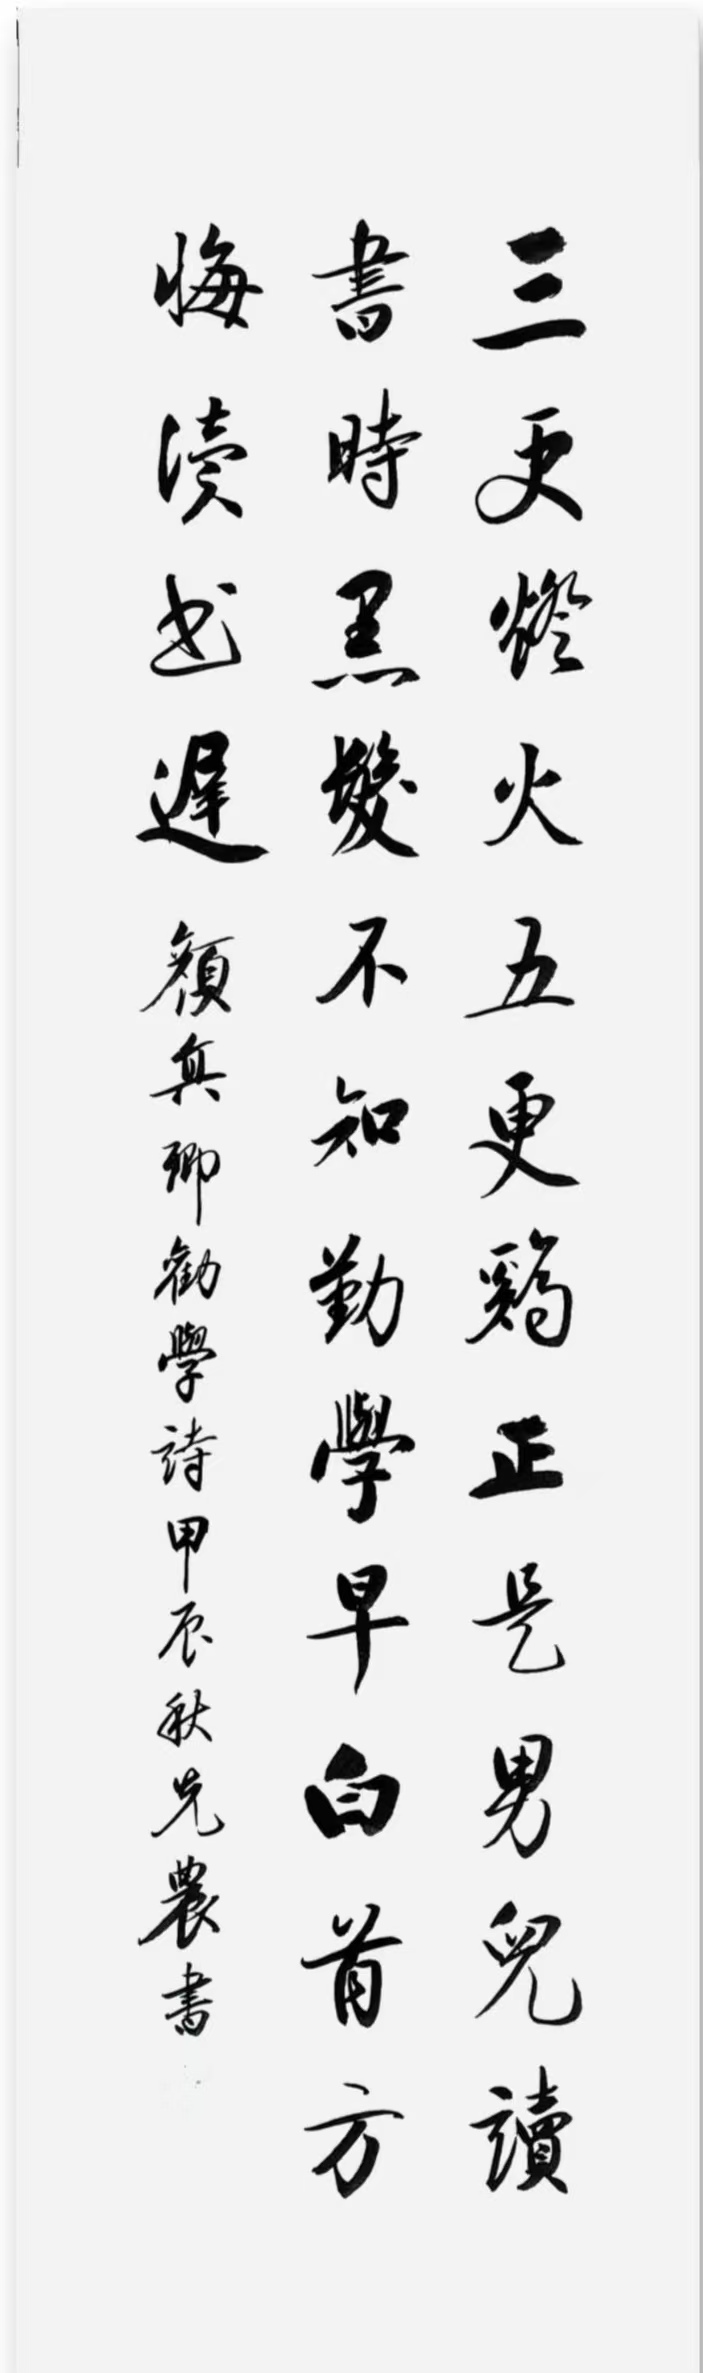 三更燈火五更鷄正是男兒讀
書時黑髮不知勤學早白首方
悔讀书遲 顏真卿勸學詩甲辰秋先農書